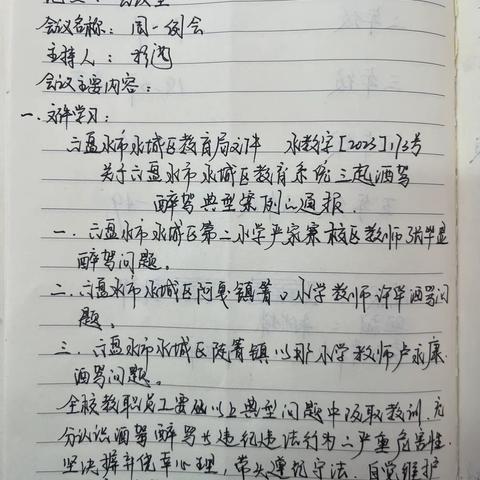 会议名称：周一例会
主持人：
会议主要内容：
一.文件学习：
六盘水市水城区教育局文件 水教字[2023]173号
关于六盘水市水城区教育系统三起酒驾
醉驾典型案例的通报.
一.六盘水市水城区第二小学严家寨校区教师张
醉驾问题.
二.六盘水市水城区阿戛镇箐口小学教师许华酒驾问
题。
三.六盘水市水城区陡箐镇以那小学教师卢永康.
酒驾问题。
全校教职员工要从以上典型问题中汲取教训.充
分认识酒驾醉驾等违纪违法行为的严重危害性.
坚决摒弃侥幸心理,带头遵纪守法.自觉维护